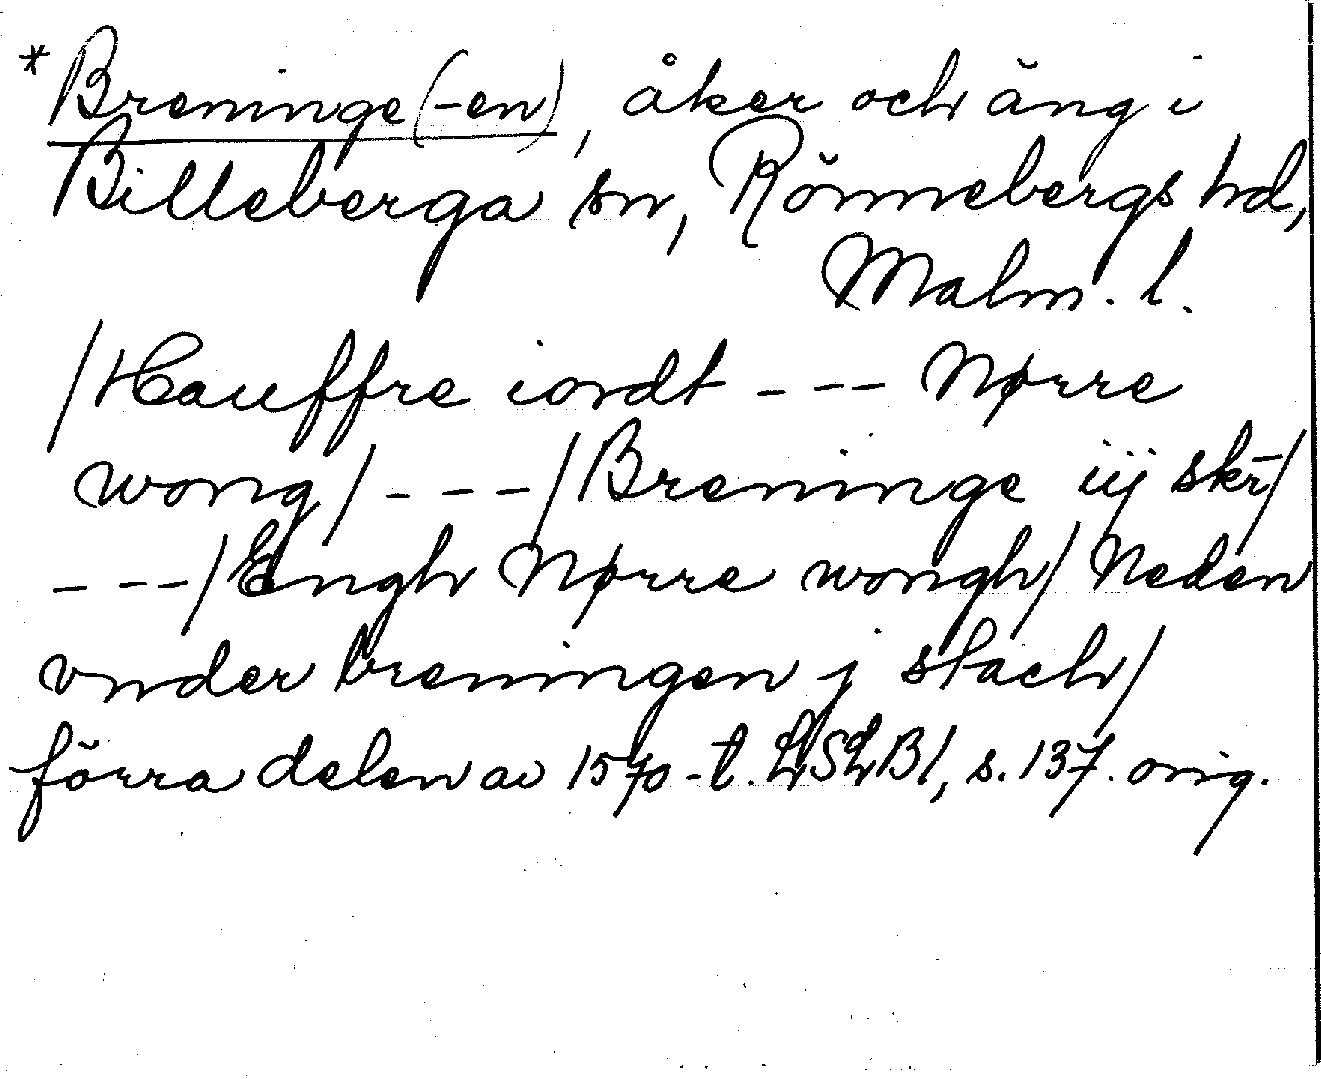 *Breninge(-en), åker och äng i
Billeberga sn, Rönnebergs hd,
Malm. l.
/Hauffre iordt --- Nørre
wong/ ---/Breninge iij skr/
---/Engh Nørre wongh/ Neden
vnder breningen j stach/
förra delen av 1570-t. LSLB1, s. 137. orig.